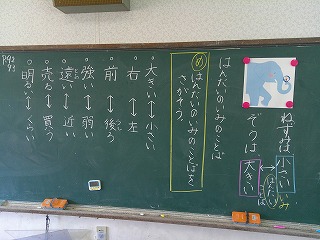 ねずみは小さい
ぞうは大きい
はんたい
いみ
ことば
はんたいのいみのことば
め はんたいのいみのことばをさがそう。
・大きい↔小さい
・右↔左
・前↔後ろ
・強い↔弱い
・遠い↔近い
・売る↔買う
・明るい↔くらい